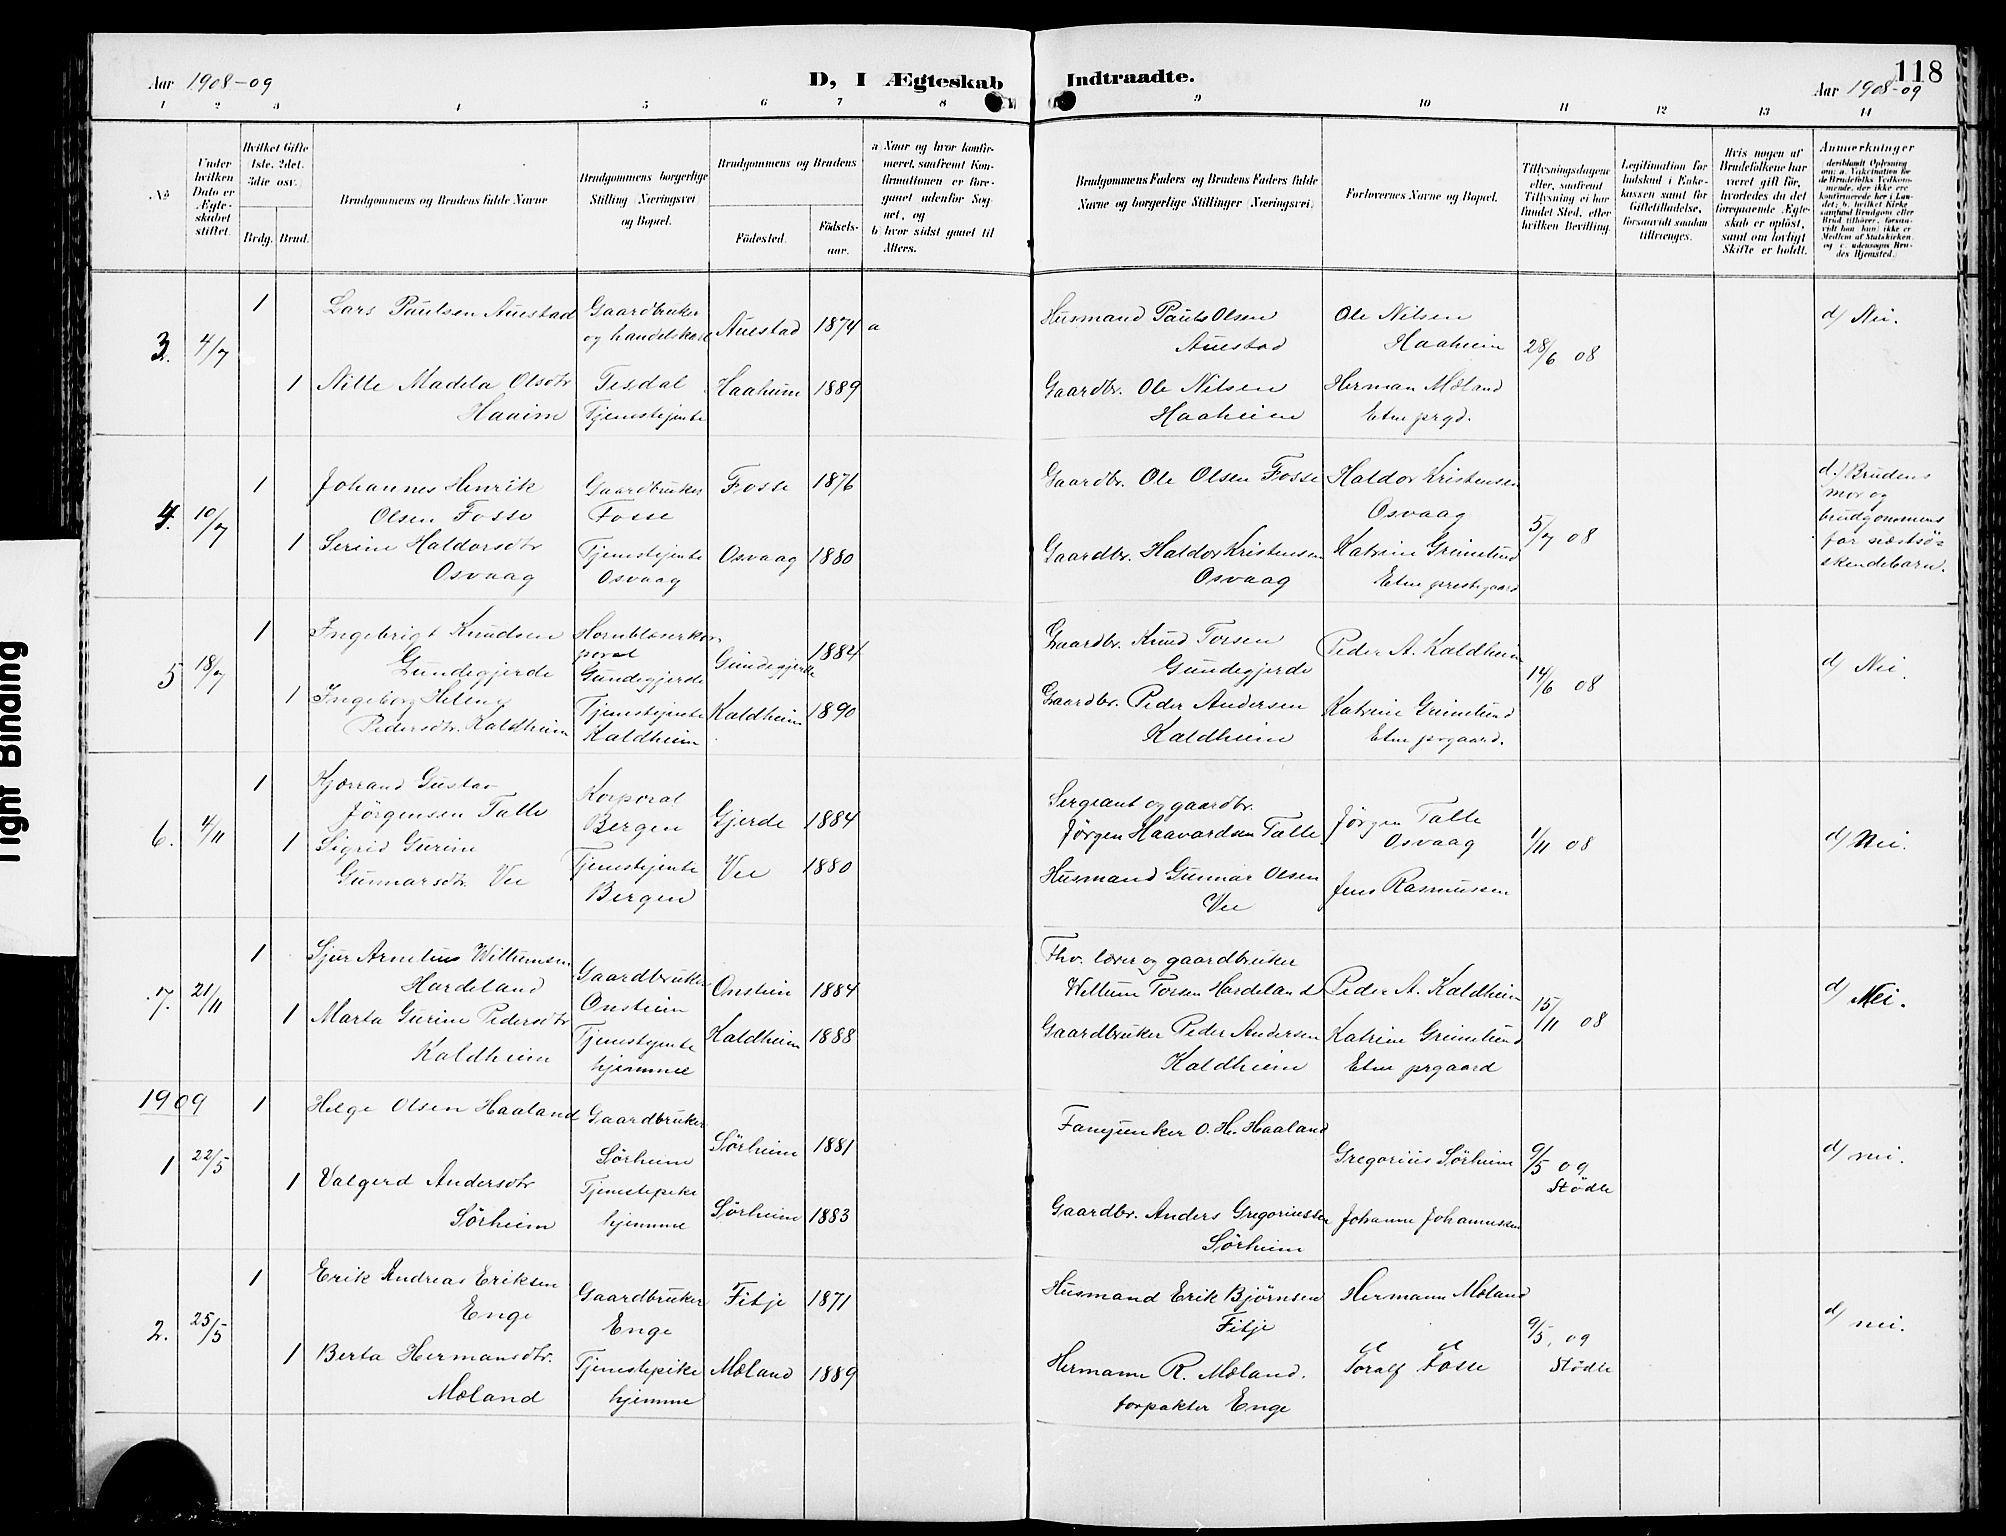 Aar 1908-09
D, I Ægteskab Indtraadte.
118
Aar 1908-09
1 2 3 4 5 6 7 8 9 10 11 12 13 14
No
Under hvilken Dato er Ægteskabet stiftet.
Hvilket Gifte 1ste. 2det. 3die osv.
Brdg. Brud.
Brudgommens og Brudens fulde Navne
Brudgommens borgerlige Stilling (Næringsvei) og Bopæl.
Brudgommens og Brudens
Fødested.
Fødselsaar.
a Naar og hvor konfirmeret, saafremt Konfirmationen er foregaaet udenfor Sognet, og
b hvor sidst gaaet til Alters.
Brudgommens Faders og Brudens Faders fulde Navne og borgerlige Stillinger (Næringsvei).
Forlovernes Navne og Bopæl.
Tillysningsdagene eller, saafremt Tillysning ei har fundet Sted, efter hvilken Bevilling.
Legitimation for Indskud i Enkekassen samt for Giftetilladelse, forsaavidt saadan tiltrænges.
Hvis nogen af Brudefolkene har været gift før, hvorledes da det foregaaende Ægteskab er opløst, samt om lovligt Skifte er holdt.
Anmerkninger
(deriblandt Oplysning om: a. Vakcination for de Brudefolks Vedkommende, der ikke ere konfirmerede her i Landet; b. hvilket Kirkesamfund Brudgom eller Brud tilhører, forsaavidt han (hun) ikke er Medlem af Statskirken, og c. udensogns Brudes Hjemsted.)
3. 4/7 1 Lars Paulsen Auestad Gaardbruker og handelskar Auestad 1874 a Husmand Pauls Olsen Auestad Ole Nilsen Haaheim 28/6 08 d/ Nei.
1 Nille Madela Olsdtr Haaim Tesdal Tjenestejente Haaheim 1889 Gaardbr. Ole Nilsen Haaheim Herman Mæland Etne prgd.
4. 10/7 1 Johannes Henrik Olsen Fosse Gaardbruker Fosse Fosse 1876 Gaardbr. Ole Olsen Fosse Haldor Kristensen Osvaag 5/7 08 d/ Brudens mor og brudgommens far næstsøskendebarn.
1 Serine Haldorsdtr Osvaag Tjenestejente Osvaag Osvaag 1880 Gaardbr. Haldor Kristensen Osvaag Katrine Grimelund Etne prestegaard
5 18/7 1 Ingebrigt Knudsen Gundegjerde Hornblæserkorporal Gundegjerde Gundegjerde 1884 Gaardbr. Knud Torsen Gundegjerde Peder A. Kaldheim 14/6 08 d/ Nei.
1 Ingeborg Helene Pedersdtr. Kaldheim Tjenestejente Kaldheim Kaldheim 1890 Gaardbr. Peder Andersen Kaldheim Katrine Grimelund Etne prgaard.
6. 4/11 1 Kjærrand Gustav Jörgensen Tatle Korporal Bergen Gjerde 1884 Sergeant og gaardbr. Jørgen Haavardsen Tatle Jørgen Tatle Osvaag 1/11 08 d/ Nei.
1 Sigrid Gurine Gunnarsdtr. Vee Tjenestejente Bergen Vee 1880 Husmand Gunnar Olsen Vee Jens Rasmussen
7. 21/11 1 Sjur Arnelius Willumsen Hardeland Gaardbruker Onstein Onstein 1884 Fhv. lærer og gaardbruker Willum Torsen Hardeland Peder A. Kaldheim 15/11 08 d/ Nei.
1 Marta Gurine Pedersdtr Kaldheim Tjenestejente hjemme Kaldheim 1888 Gaardbruker Peder Andersen Kaldheim Katrine Grimelund Etne prgaard
1909
1 22/5 1 Helge Olsen Haaland Gaardbruker Sörheim Sörheim 1881 Fanejunker O. H. Haaland Gregorius Sörheim 9/5 09 Stödle d/ nei.
1 Valgerd Andersdtr Sörheim Tjenestepike hjemme Sörheim 1883 Gaardbr. Anders Gregoriussen Sörheim Johanne Johannessen
2. 25/5 1 Erik Andreas Eriksen Enge Gaardbruker Enge Fitje 1871 Husmand Erik Bjørnsen Fitje Hermann Mæland 9/5 09 Stödle d/ nei.
1 Berta Hermansdtr. Mæland Tjenestepike hjemme Mæland 1889 Hermann R. Mæland. forpakter Enge Toralf Fosse
Tight Binding